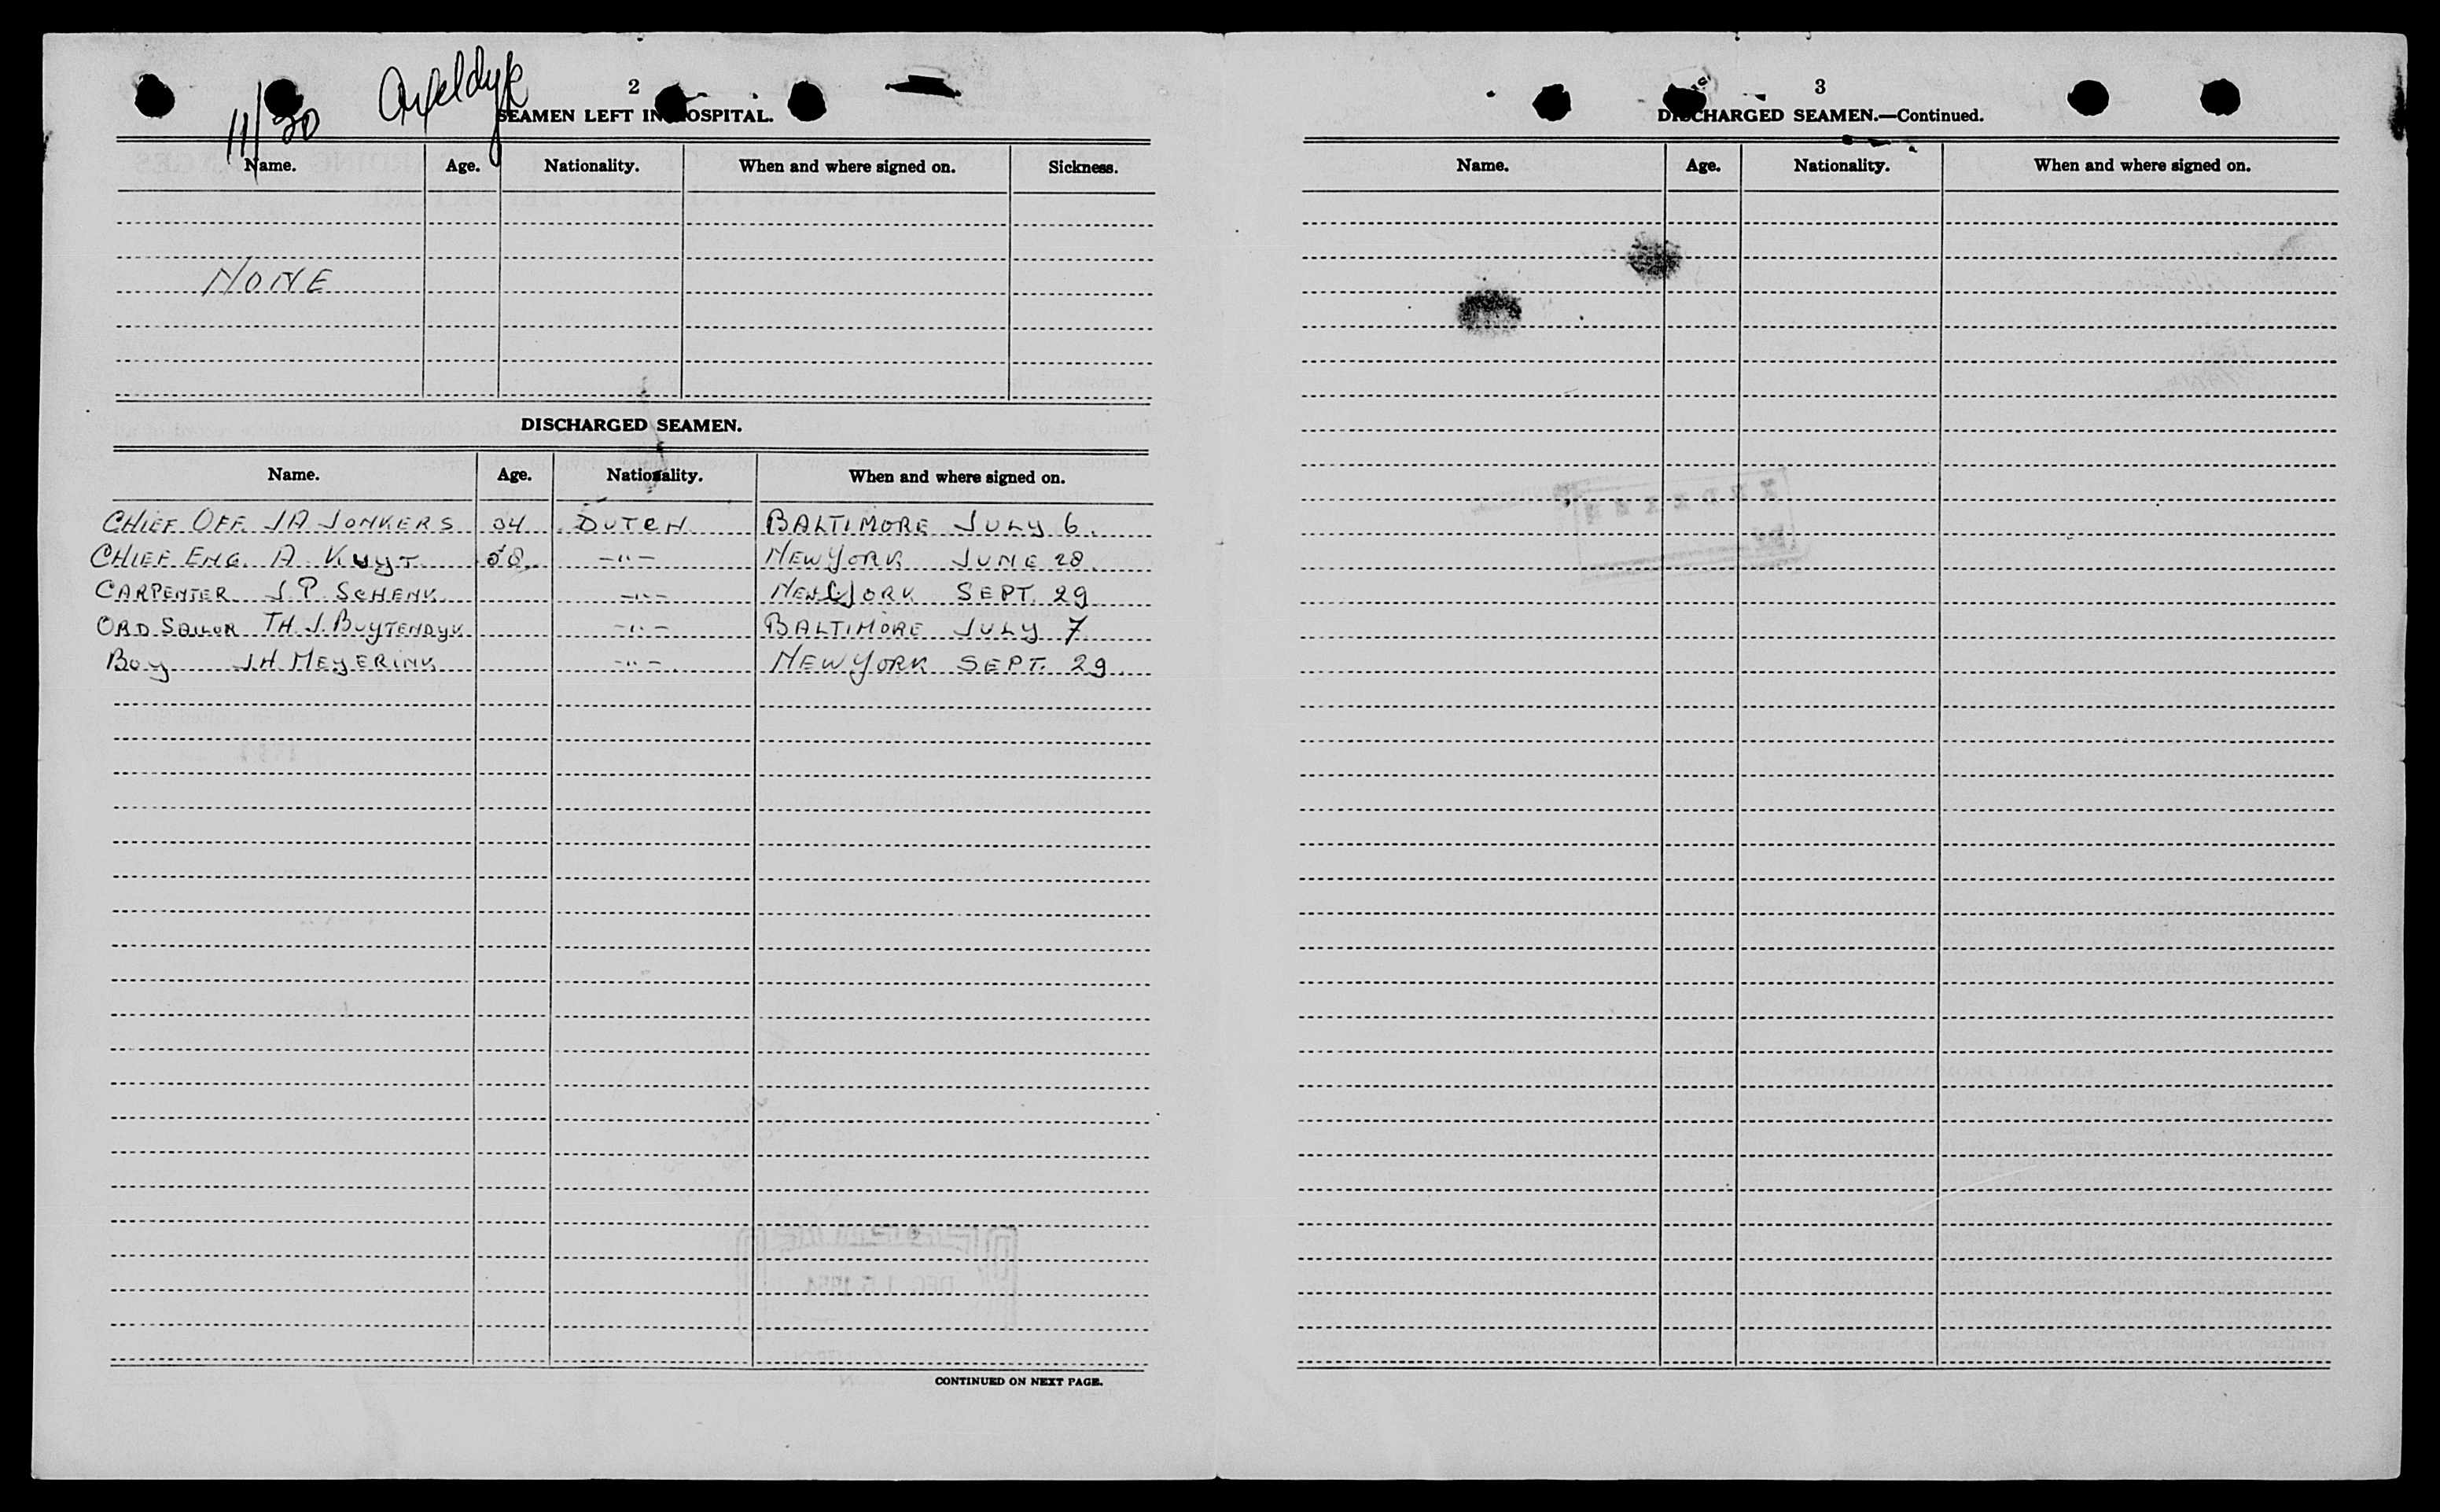 11/30
2
SEAMEN LEFT IN HOSPITAL.
Name. Age. Nationality. When and where signed on. Sickness.
NONE
DISCHARGED SEAMEN.
Name. Age. Nationality. When and where signed on.
CHIEF OFF. JA JONKERS 34 DUTCH BALTIMORE JULY 6.
CHIEF ENG. A KUYT 58 —"— NEW YORK JUNE 28.
CARPENTER J.P. SCHENK —"— NEW YORK SEPT. 29
ORD SAILOR TH. J. BUYTENDYK —"— BALTIMORE JULY 7
BOY J.H. MEYERINK —"— NEW YORK SEPT. 29.
CONTINUED ON NEXT PAGE.
3
DISCHARGED SEAMEN.—Continued.
Name. Age. Nationality. When and where signed on.